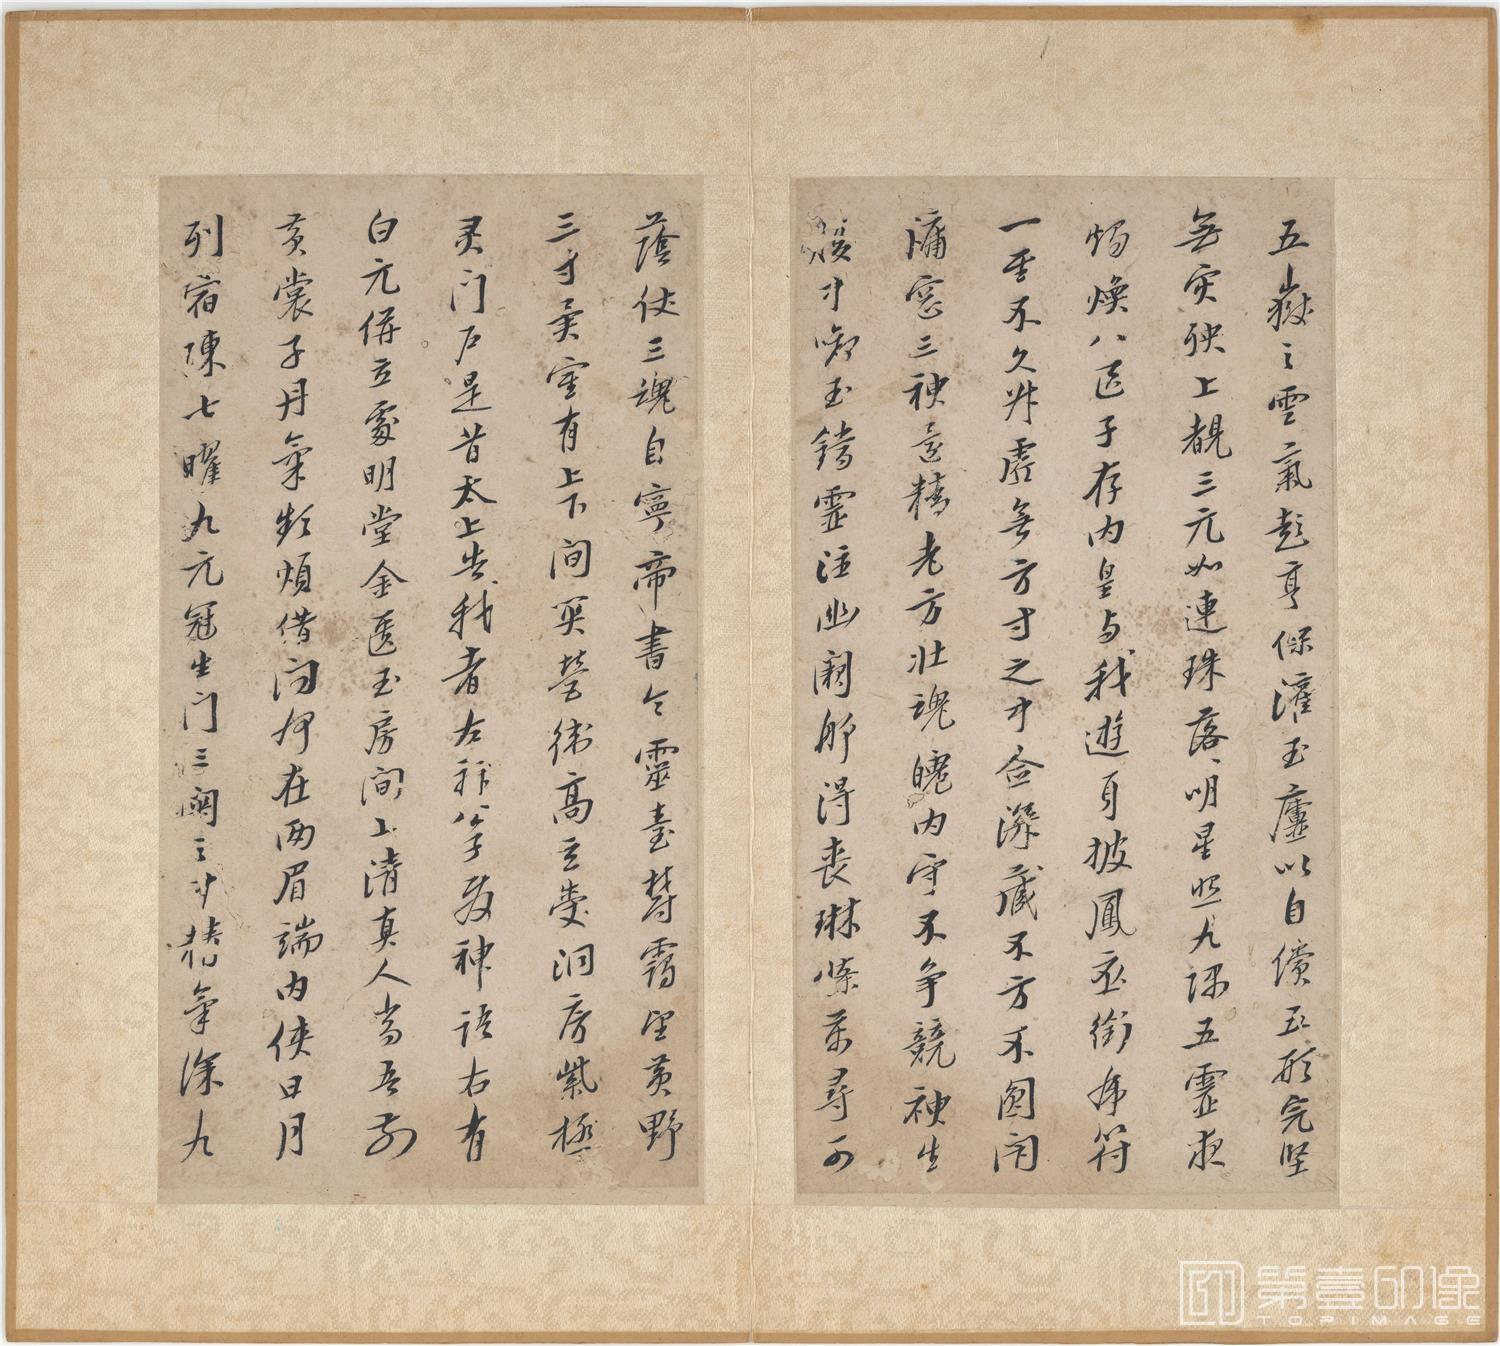 五嶽之雲氣彭亨保灌玉廬以自償五形完堅
無灾殃上覩三元如連珠落、明星照九隅五靈夜
燭煥八區子存内皇与我遊身披鳳衣銜虎符
一至不久昇虚無方寸之中念深藏不方不圓閉
牖窓三神還精老方壮魂魄内守不争競神生
腹中銜玉鐺靈注幽闕那得喪琳條萬尋可
蔭仗三魂自寧帝書命靈臺欝靄望黄野
三寸異室有上下間関營衛高玄受洞房紫極
灵门户是昔太上告我者左神公子發神語右有
白元併立處明堂金匱玉房間上清真人當吾前
黄裳子丹氣頻煩借问何在两眉端内侠日月
列宿陳七曜九元冠生门三関之中精氣深九
第壹印像
TOPIMAGE